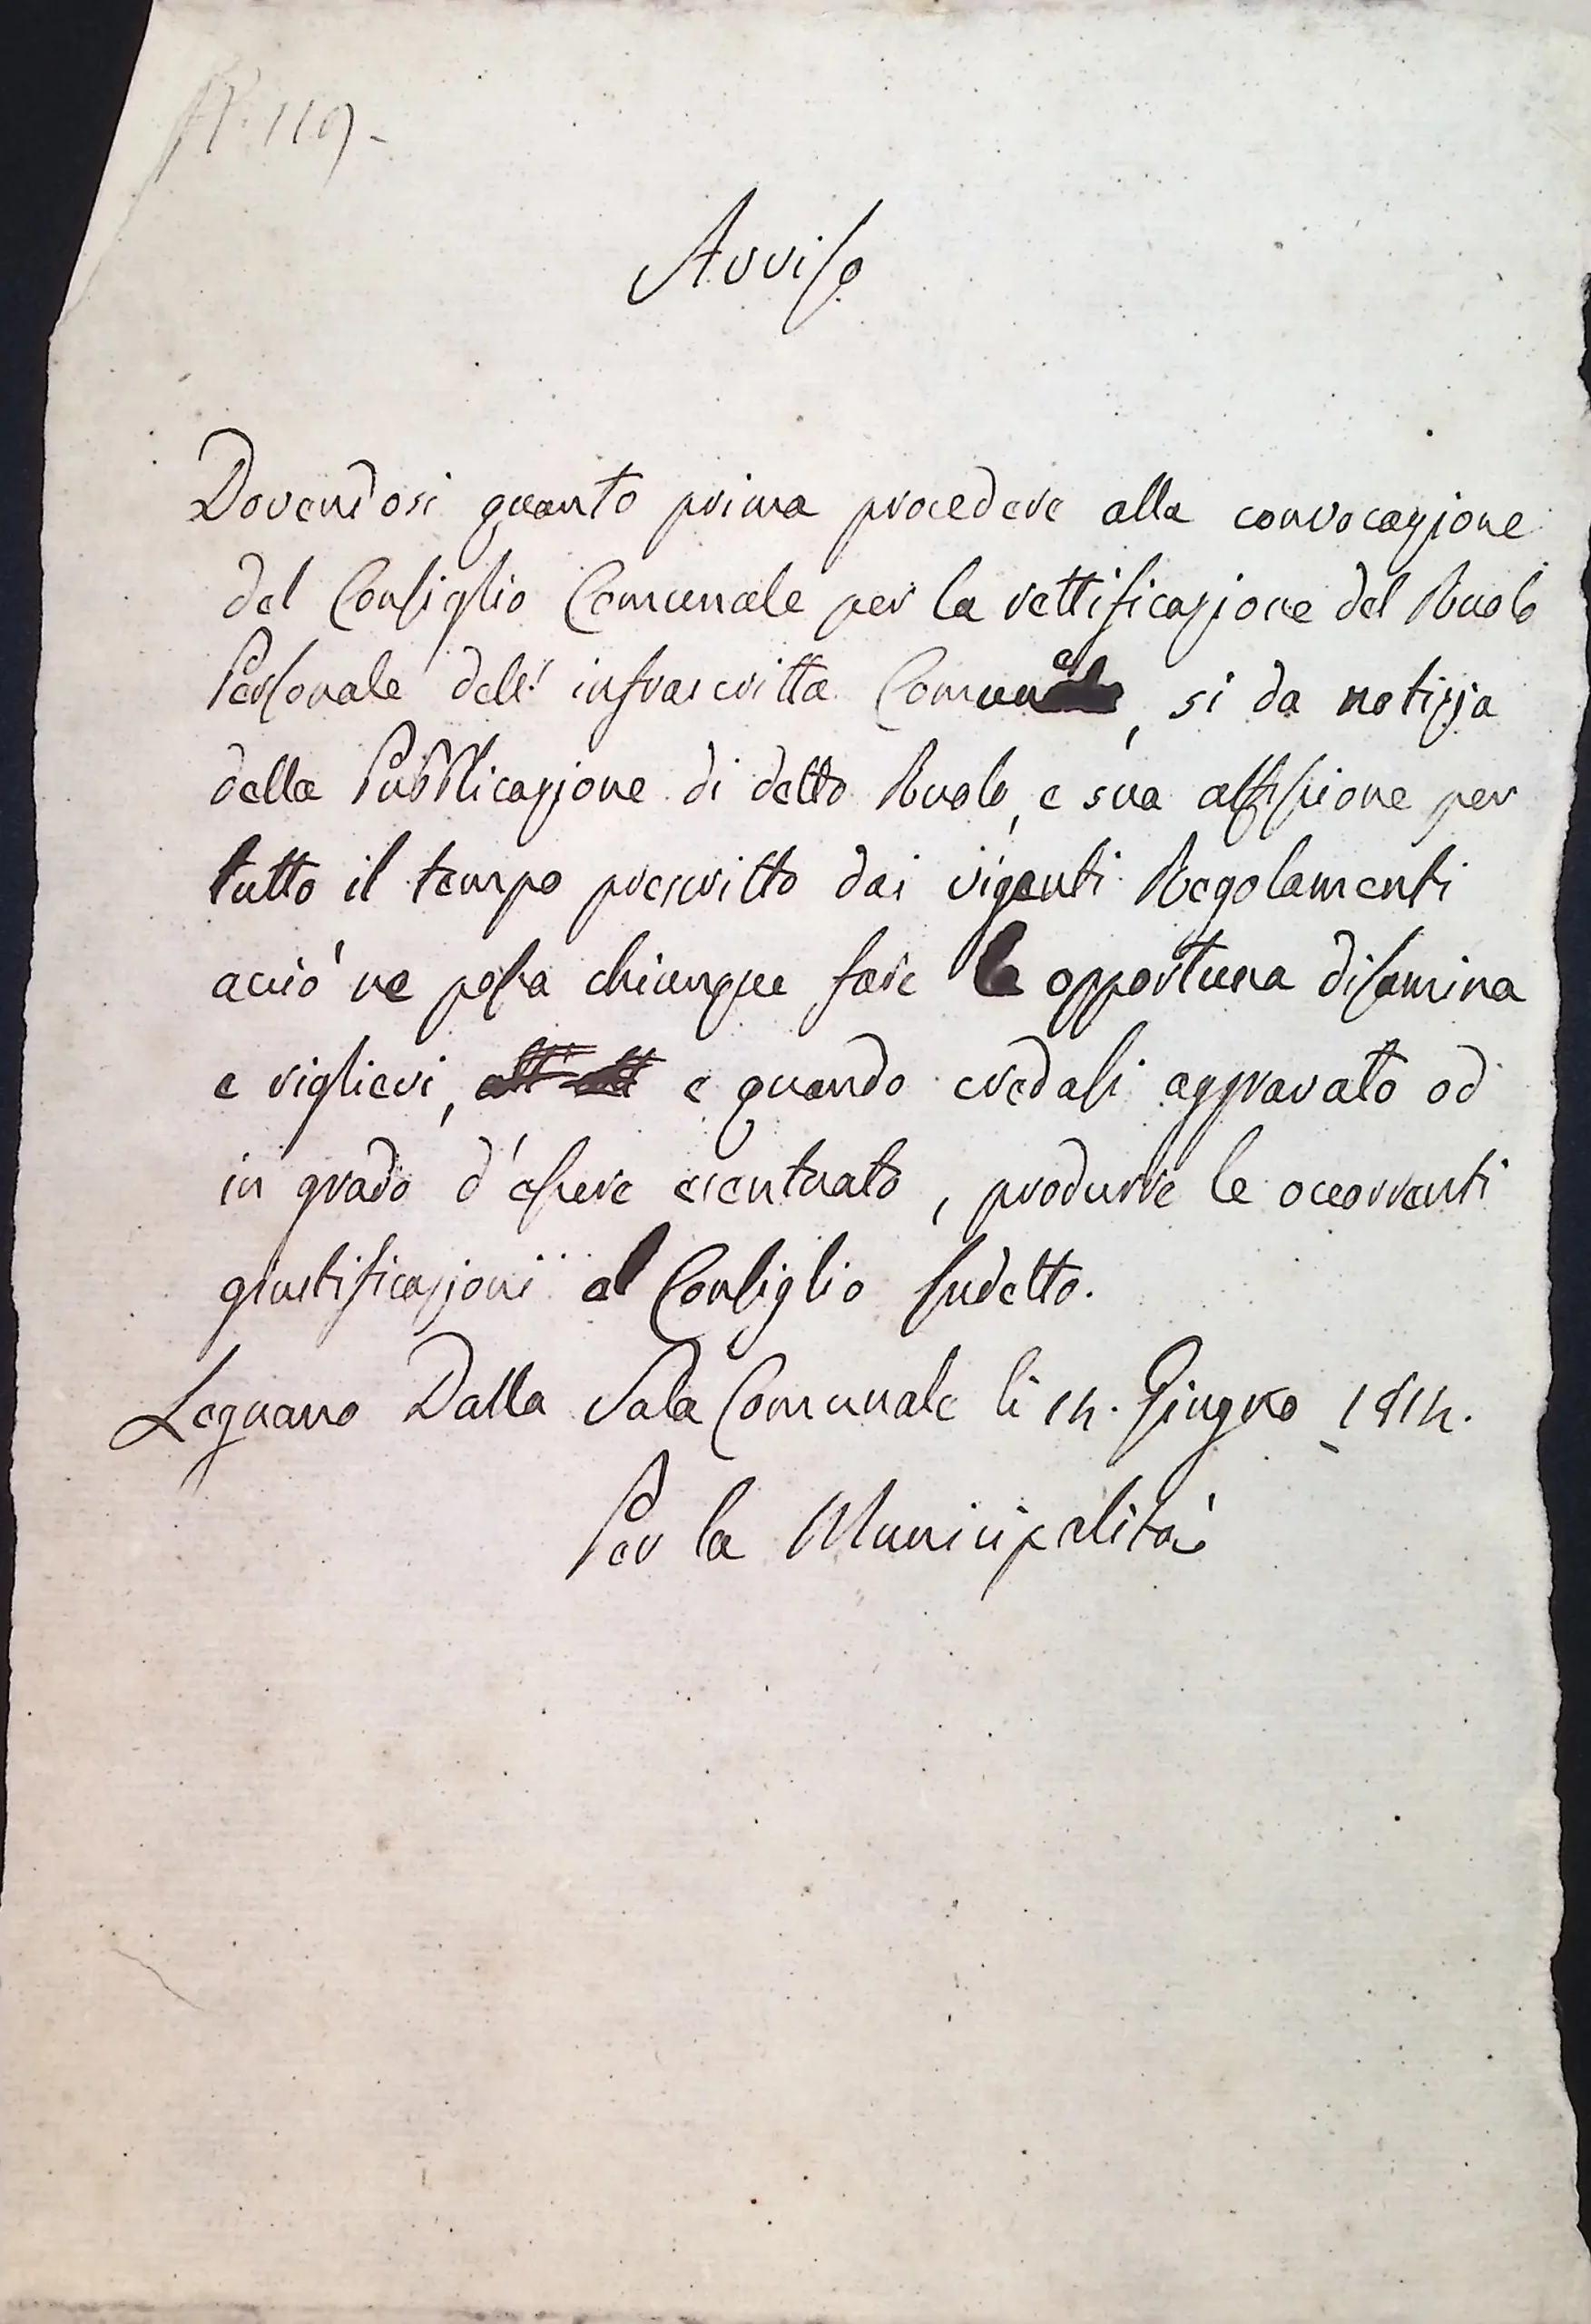 N.° 119-
Avviso
Dovendosi quanto prima procedere alla convocazione
del Consiglio Comunale per la rettificazione del Ruolo
Personale dell' infrascritta Comune, si da notizia
della Pubblicazione di detto Ruolo, e sua affissione per
tutto il tempo prescritto dai vigenti Regolamenti
acciò ne possa chiunque fare la opportuna disamina
e riglievi, e quando credasi aggravato od
in grado d'essere esentuato, produrre le occorrenti
giustificazioni al Consiglio sudetto.
Legnano Dalla Sala Comunale li 14. Giugno 1814.
Per la Municipalità